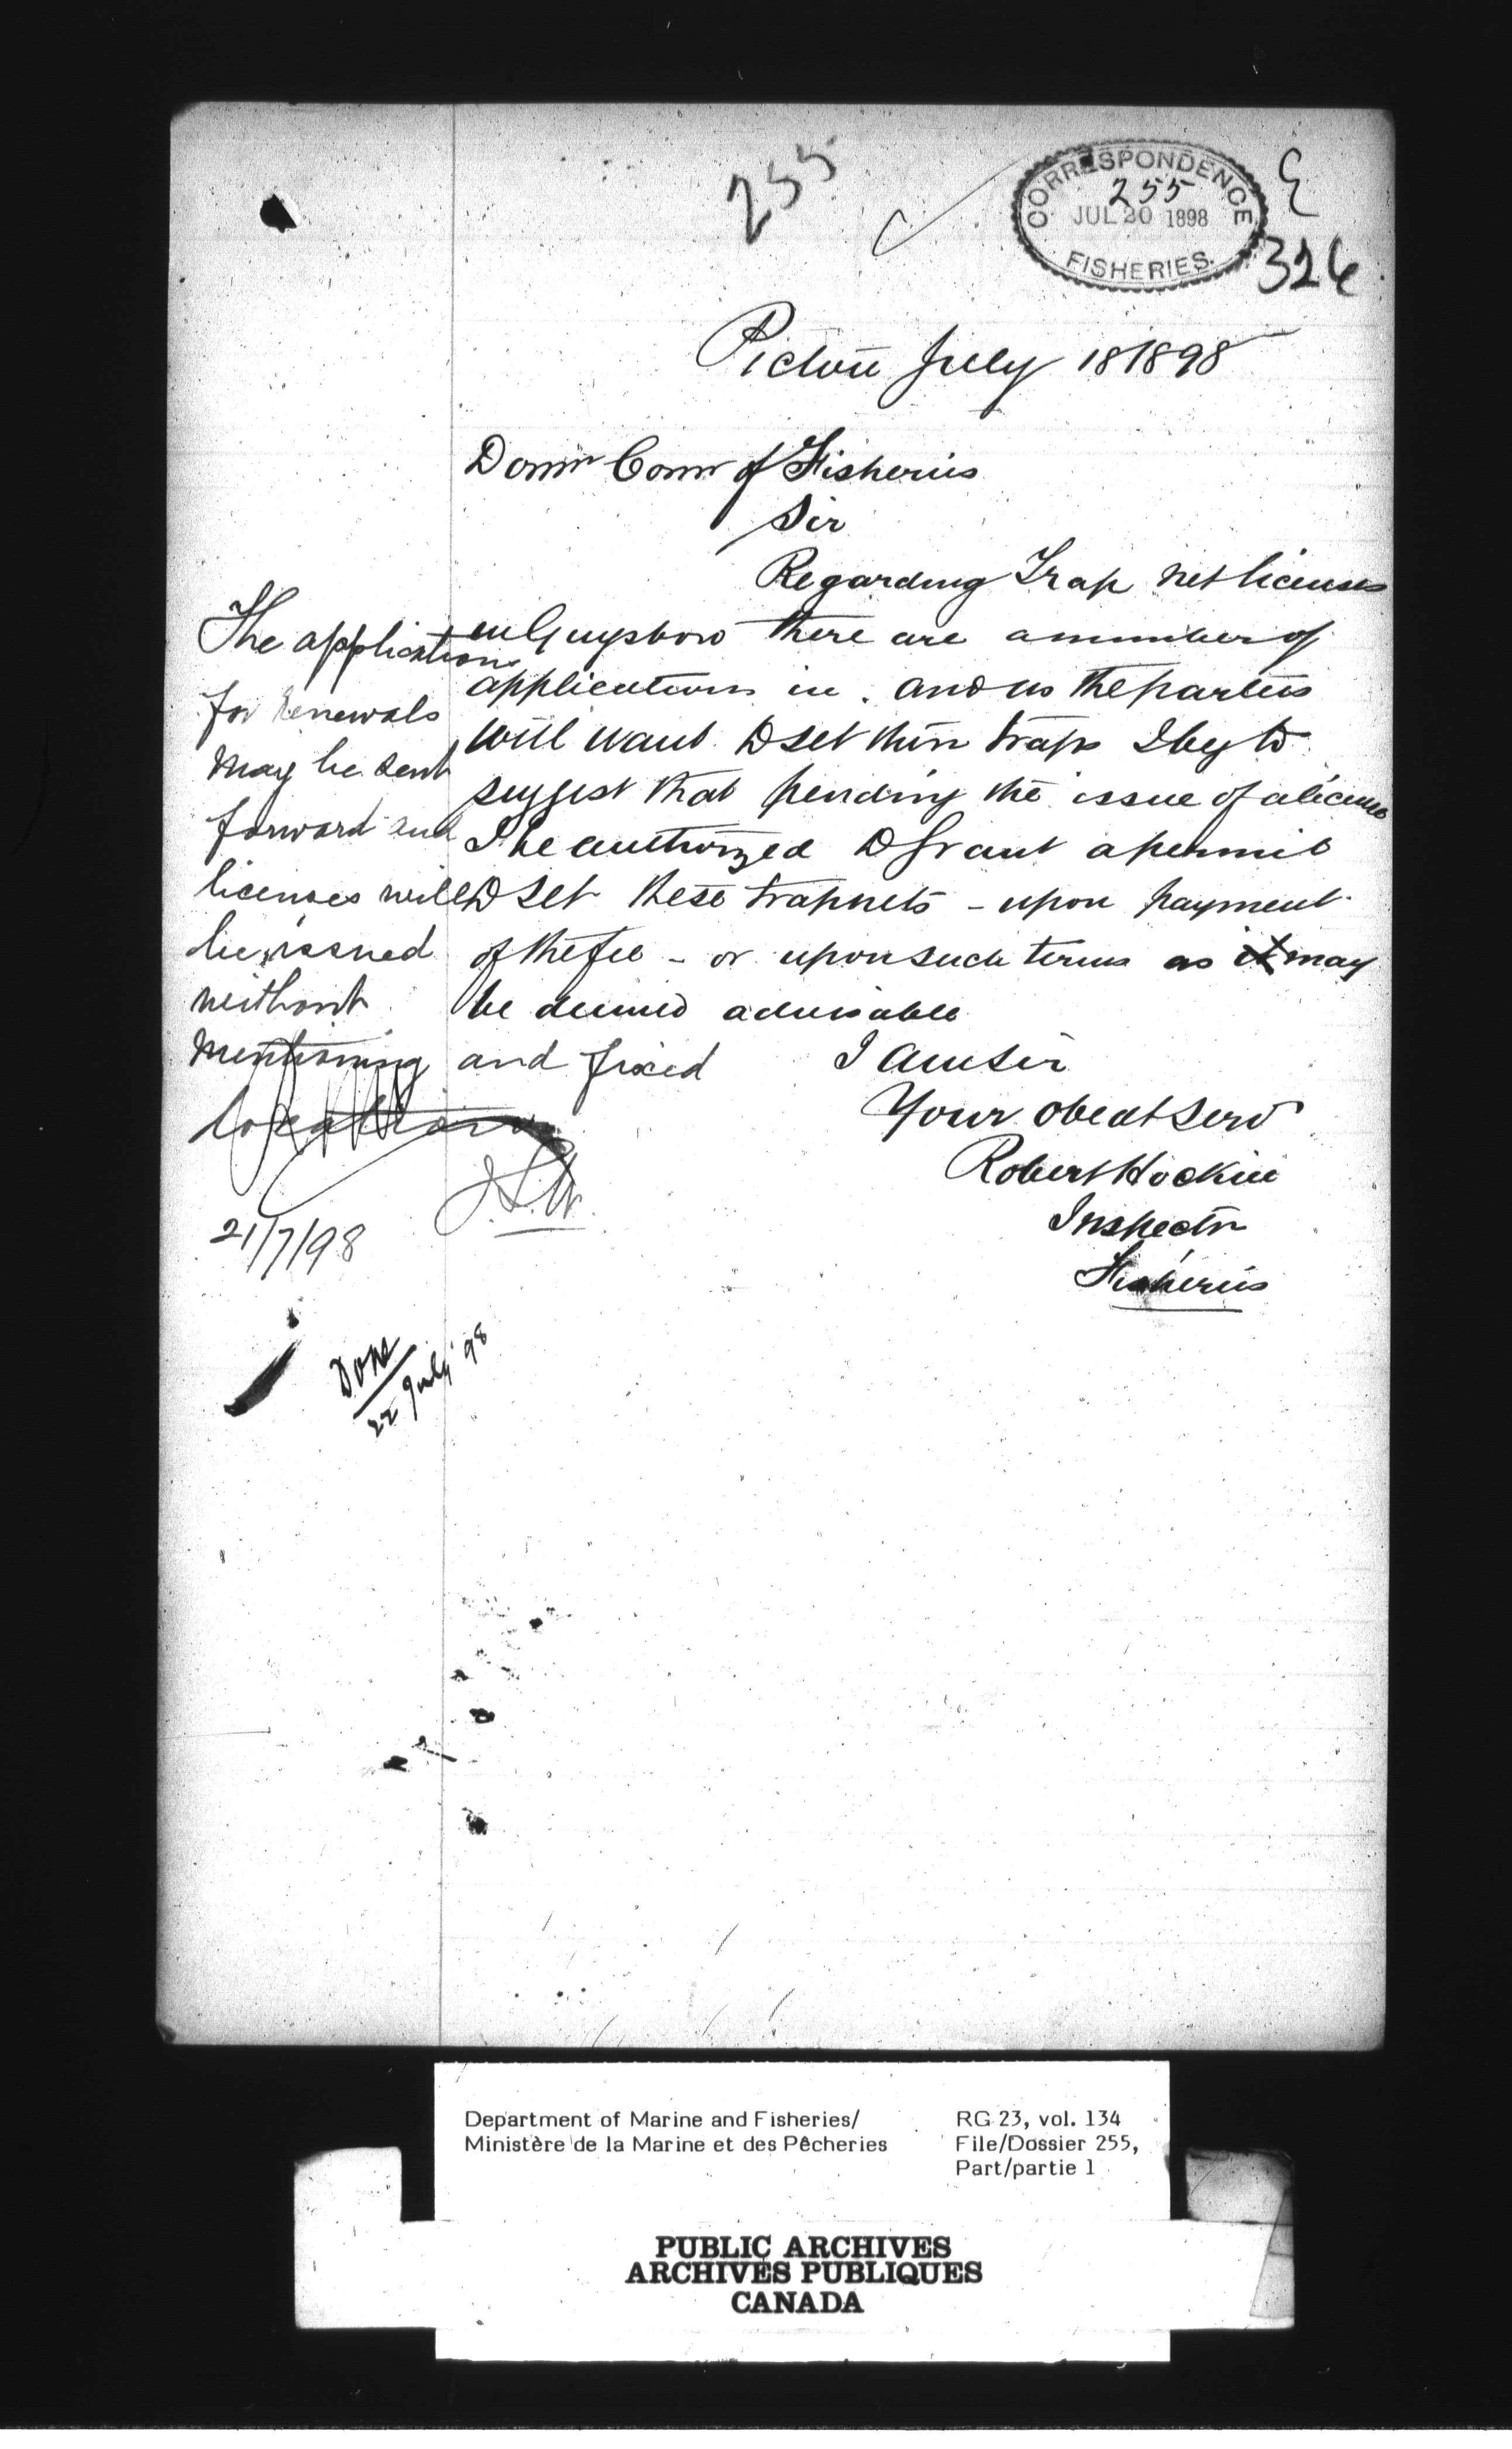 255
CORRESPONDENCE
255
JUL 20 1898
FISHERIES.
E
326
Pictou July 18 1898
Domn Comr of Fisheries
Sir
Regarding Trap net licenses
in Guysboro there are a number of
applications in. and as the parties
will want to set their traps I beg to
suggest that pending the issue of a license
I be authorized to grant a permit
to set these trapnets - upon payment
of the fee - or upon such terms as it may
be deemed advisable
I am Sir
Your obedt Servt
Robert Hockin
Inspector
Fisheries
The applications
for renewals
may be sent
forward and
licenses will
be issued
without
mentioning and fixed
locations
21/7/98
Done
22 July '98
Department of Marine and Fisheries/
Ministère de la Marine et des Pêcheries
RG 23, vol. 134
File/Dossier 255,
Part/partie 1
PUBLIC ARCHIVES
ARCHIVES PUBLIQUES
CANADA